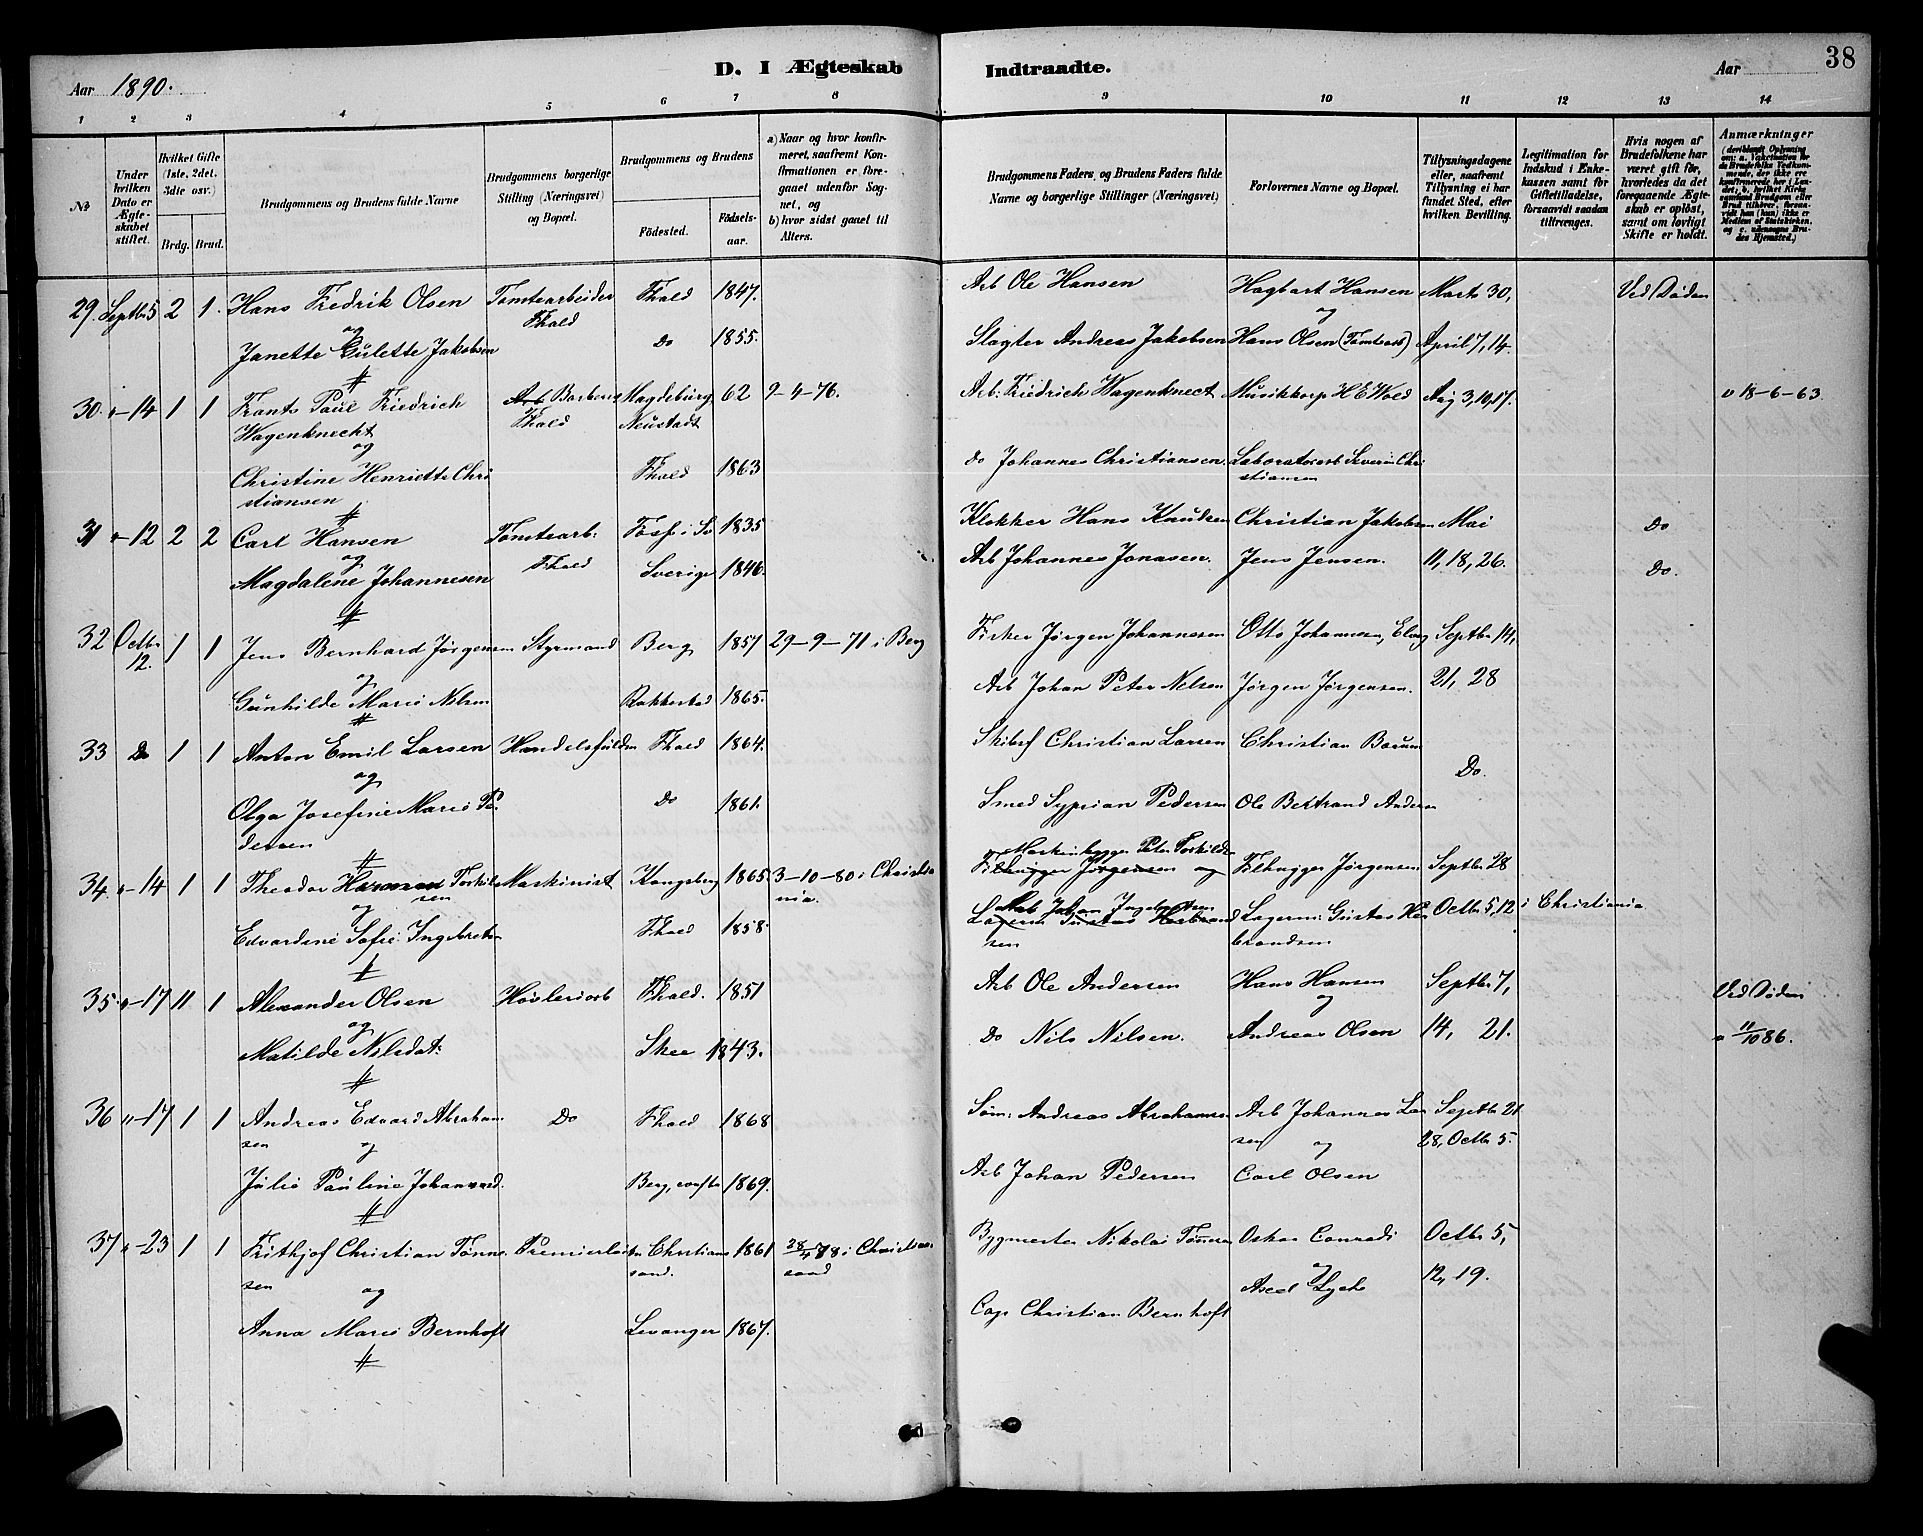 38
D. I Ægteskab Indtraadte.
Aar 1890. Aar
1 2 3 4 5 6 7 8 9 10 11 12 13 14
№
Under hvilken Dato er Ægteskabet stiftet.
Hvilket Gifte (1ste, 2det, 3die osv.)
Brdg. Brud.
Brudgommens og Brudens fulde Navne
Brudgommens borgerlige Stilling (Næringsvei) og Bopæl.
Brudgommens og Brudens
Fødested. Fødselsaar.
a) Naar og hvor konfirmeret, saafremt Konfirmationen er foregaaet udenfor Sognet, og
b) hvor sidst gaaet til Alters.
Brudgommens Faders, og Brudens Faders fulde Navne og borgerlige Stillinger (Næringsvei)
Forlovernes Navne og Bopæl.
Tillysningsdagene eller, saafremt Tillysning ei har fundet Sted, efter hvilken Bevilling.
Legitimation for Indskud i Enkekassen samt for Giftetilladelse, forsaavidt saadan tiltrænges.
Hvis nogen af Brudefolkene har været gift før, hvorledes da det foregaaende Ægteskab er opløst, samt om lovligt Skifte er holdt.
Anmærkninger
29. Septbr 5 2 1. Hans Fredrik Olsen Tomtearbeider Fhald Fhald 1847. Arb Ole Hansen Hagbart Hansen Marts 30, Ved Døden
og og
Janette Gulette Jakobsen Do 1855. Slagter Andreas Jakobsen Hans Olsen (Tomtearb) April 7, 14.
30. " - 14 1 1 Frants Paul Friedrich Arb Barberer Magdeburg 62 9-4-76. Arb: Friedrich Wagenknect Musikkorp H E Wold Aug 3, 10, 17. v 18-6-63.
Wagenknecht Fhald Neustadt
og
Christine Henriette Chri Fhald 1863 Do Johannes Christiansen Laboratorarb Severin Chri
stiansen stiansen
31 " - 12 2 2 Carl Hansen Tomtearb: Foss i Sv 1835 Klokker Hans Knudsen Christian Jakobsen Mai Do
og Fhald
Magdalene Johannesen Sverige 1846. Arb Johannes Jonasen. Jens Jensen. 11, 18, 26. Do.
32 Octbr 12. 1 1 Jens Bernhard Jørgensen Styrmand Berg 1857 29-9-71 i Berg Fisker Jørgen Johannesen Otto Johannesen, Elvog Septbr 14,
og
Gunhilde Marie Nilsen Rakkestad 1865. Arb Johan Peter Nelsen Jørgen Jørgensen. 21, 28
33 Do 1 1 Anton Emil Larsen Handelsfuldm Fhald 1864. Skibsf Christian Larsen Christian Borum
og Do.
Olga Josefine Marie Pe Do 1861. Smed Syprian Pedersen Ole Bertrand Andersen
dersen
34. " - 14 1 1 Theodor Herman Torkild Maskinist Kongsberg 1865 3-10-80 i Christia Maskinbygger Peter Torkildsen
sen nia. Filhugger Jørgensen og Filhugger Jørgensen Septbr 28
og Arb Johan Ingebretsen
Edvardine Sofie Ingebrets Fhald 1858. Lagerm Gustav Herbrand Lagerm: Gustav Her Octbr 5, 12 i Christiania
sen brandsen
35 " - 17 11 1 Alexander Olsen Høvleriarb Fhald. 1851 Arb Ole Andersen Hans Hansen Septbr 7, Ved Døden
og og
Matilde Nilsdat: Skee 1843. Do Nils Nilsen. Andreas Olsen 14, 21. 11/10 86.
36 " - 17 1 1 Andreas Edvard Abraham Do Fhald 1868 Søm: Andreas Abrahamsen Arb Johannes Lar Septbr 21
sen og sen og 28, Octbr 5.
Julie Pauline Johannesd. Berg, 1869. Arb Johan Pedersen Carl Olsen
37 " - 23 1 1 Frithjof Christian Tønne Premierløit Christians 1861 28/4 78 i Christian Bygmester Nikolai Tønnesen Oskar Conradi Octbr 5,
sen sand. sand og 12, 19.
og Axel Lyche
Anna Marie Bernhoft Levanger 1867. Cap Christian Bernhoft